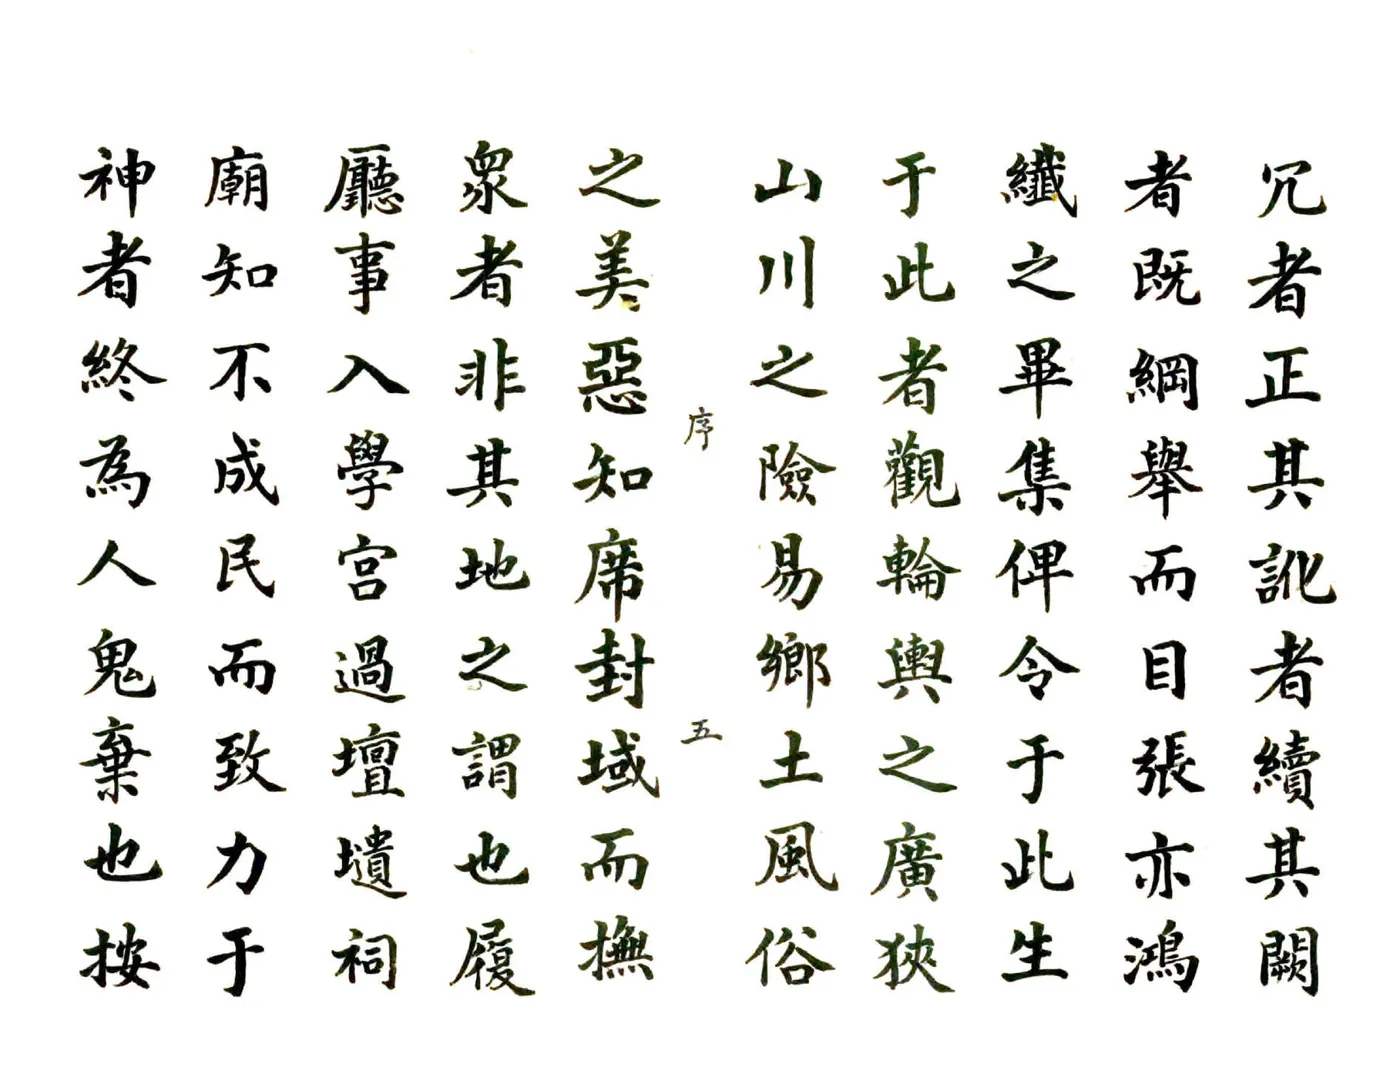 冗者正其訛者續其闕
者既綱舉而目張亦鴻
纖之畢集俾令于此生
于此者觀輪輿之廣狹
山川之險易鄉土風俗
序 五
之美惡知席封域而撫
衆者非其地之謂也履
廳事入學宮過壇壝祠
廟知不成民而致力于
神者終為人鬼棄也按